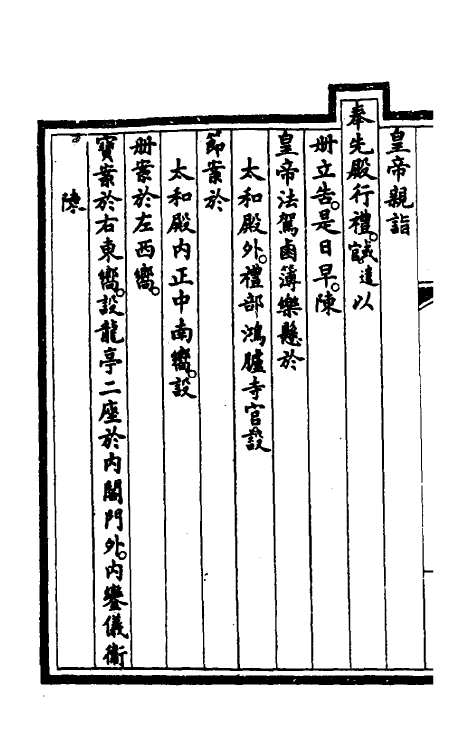 皇帝親詣
奉先殿行禮。誠達以
册立告。是日早。陳
皇帝法駕鹵簿樂懸於
太和殿外。禮部鴻臚寺官設
節案於
太和殿內正中南嚮。設
册案於左西嚮。
寶案於右東嚮。設龍亭二座於內閣門外。內鑾儀衞
陳